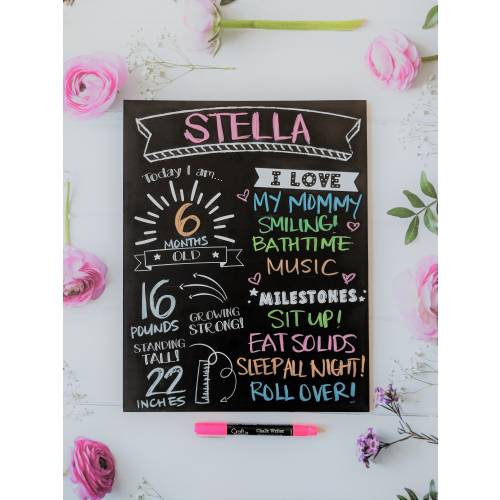 STELLA
Today I am...
6
MONTHS
OLD
16
POUNDS
GROWING
STRONG!
STANDING
TALL!
22
INCHES
I LOVE
MY MOMMY
SMILING!
BATHTIME
MUSIC
MILESTONES
SIT UP!
EAT SOLIDS
SLEEP ALL NIGHT!
ROLL OVER!
Craft Chalk Writer